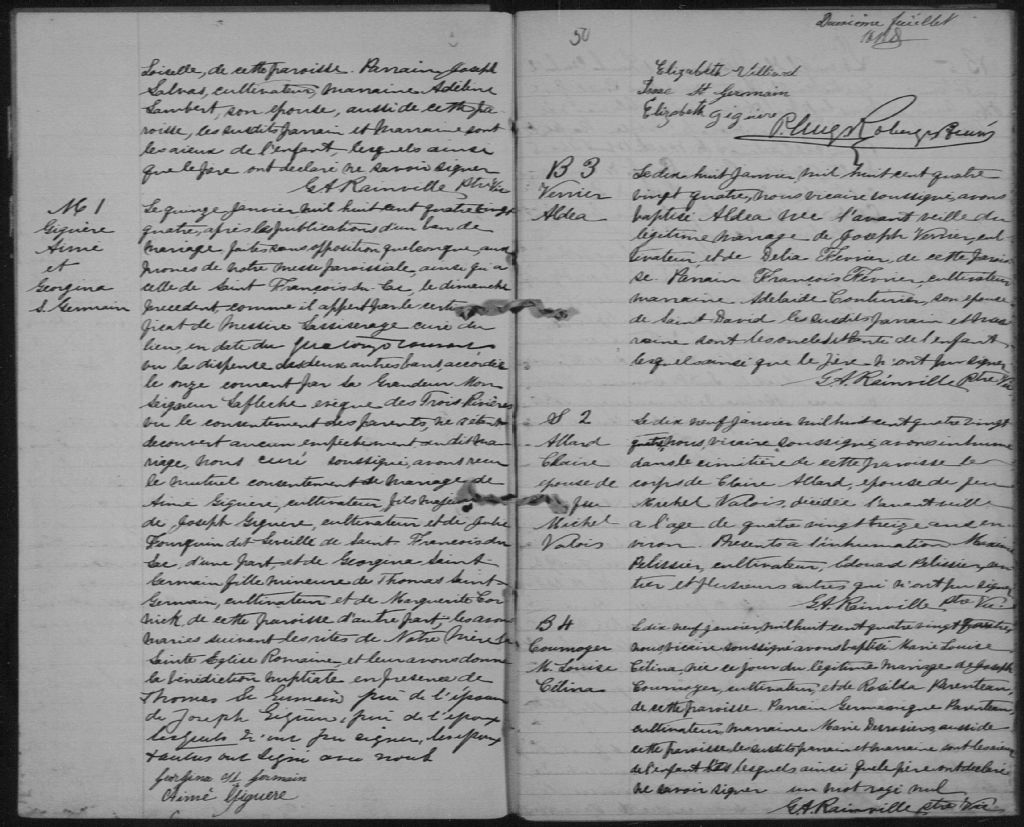 Loiselle, de cette paroisse. Parrain Joseph
Salvas, cultivateur, marraine Adeline
Lambert, son épouse, aussi de cette pa
roisse, lesusdits parrain et marraine sont
les aieux de l'enfant, lesquels ainsi
que le père ont déclaré ne savoir signer
G A Rainville ptre Vic
M 1
Giguère
Aimé
et
Georgina
S. Germain
Le quinze Janvier mil huit cent quatre vingt
quatre, après les publications d'un ban de
mariage faites sans opposition quelconque, aux
prones de notre messe paroissiale, ainsi qu'à
celle de Saint François du Lac, le dimanche
precedent, comme il appert par le certi
ficat de Messire curé du
lieu, en date du courant
vu la dispense des deux autres bans accordée
le onze courant par Sa Grandeur Mon
seigneur Lafleche evêque des Trois Rivières
vu le consentement des parents, ne s'étant
decouvert aucun empêchement au dit ma
riage, nous curé soussigné, avons recu
le mutuel consentement de mariage de
Aimé Giguère, cultivateur, fils majeur
de Joseph Giguère, cultivateur et de Julie
Fourquin dit Léveille de Saint François du
Lac, d'une part et de Georgina Saint
Germain fille mineure de Thomas Saint
Germain, cultivateur et de Marguerite
de cette paroisse d'autre part les avons
mariés suivant les rites de Notre Mère la
Sainte Eglise Romaine, et leur avons donné
la bénédiction nuptiale en presence de
Thomas St Germain père de l'épouse
de Joseph Giguère, père de l'époux
lesquels n'ont pu signer, les époux
& autres ont signé avec nous
Georgina St Germain
Aimé Giguère
50
Deuxième feuillet
Elizabeth Villiard
Isaac St Germain
Elizabeth Giguère
B 3
Verrier
Aldea
Le dix huit Janvier, mil huit cent quatre
vingt quatre, nous vicaire soussigné, avons
baptisé Aldea née l'avant veille du
légitime mariage de Joseph Verrier, cul
tivateur et de Delia Février, de cette parois
se. Parrain François Février, cultivateur
marraine Adelaide Couturier, son épouse
de Saint David les susdits parrain et mar
raine sont les oncle et tante de l'enfant
lesquels ainsi que le père n'ont pu signer
G A. Rainville ptre Vic.
S 2
Allard
Claire
epouse de
feu
Michel
Valois
Le dix neuf Janvier mil huit cent quatre vingt
quatre, nous, vicaire soussigné, avons inhumé
dans le cimitière de cette paroisse le
corps de Claire Allard, epouse de feu
Michel Valois, décédée l'avant veille
a l'age de quatre vingt treize ans en
viron. Presents a l'inhumation Maxime
Pelissier, cultivateur, Edouard Pelissier, ren
tier et plusieurs autres qui n'ont pu signer
G A. Rainville ptre Vic.
B 4
Cournoyer
M. Louise
Célina
Le dix neuf janvier, mil huit cent quatre vingt quatre,
nous vicaire soussigné avons baptisé Marie Louise
Célina, née ce jour du légitime mariage de Joseph
Cournoyer, cultivateur, et de Rosilda Parenteau,
de cette paroisse. Parrain Parenteau,
cultivateur, marraine Marie aussi de
cette paroisse, les susdits parrain et marraine sont les aieux
de l'enfant lesquels ainsi que le père ont déclaré
ne savoir signer un mot rayé nul
G A. Rainville ptre Vic